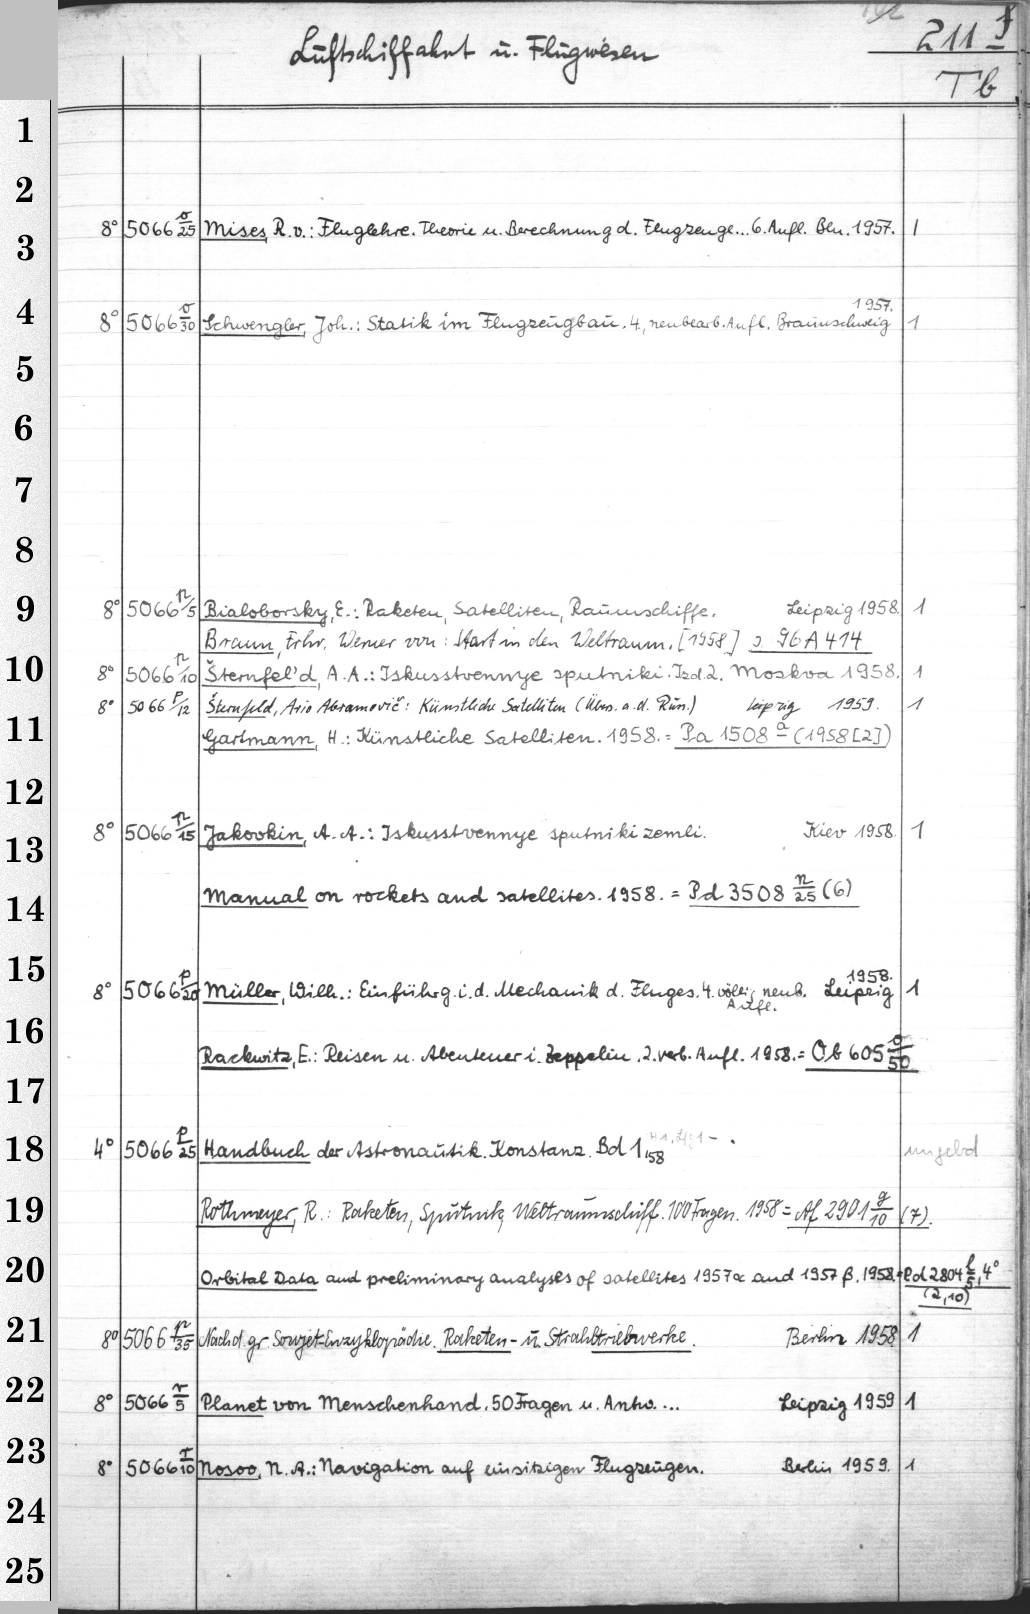 Luftschiffahrt u. Flugwesen
211 f
Tb
1
2
8° 5066 o/25 Mises, R. v.: Fluglehre. Theorie u. Berechnung d. Flugzeuge... 6. Aufl. Bln. 1957. 1
3
1957.
4
8° 5066 o/30 Schwengler, Joh.: Statik im Flugzeugbau. 4., neubearb. Aufl. Braunschweig 1
5
6
7
8
9
8° 5066 p/5 Bialoborsky, E.: Raketen, Satelliten, Raumschiffe. Leipzig 1958. 1
Braun, Frhr. Werner von: Start in den Weltraum. [1958] 96 A 414
10
8° 5066 p/10 Šternfel'd, A. A.: Iskusstvennye sputniki. Izd. 2. Moskva 1958. 1
8° 5066 p/12 Šternfeld, Ario Abramovič: Künstliche Satelliten (Übers. a. d. Russ.) Leipzig 1959. 1
11
Gartmann, H.: Künstliche Satelliten. 1958. = Pa 1508 a (1958[2])
12
8° 5066 p/15 Jakovkin, A. A.: Iskusstvennye sputniki zemli. Kiev 1958. 1
13
Manual on rockets and satellites. 1958. = Pd 3508 n/25 (6)
14
15
1958.
8° 5066 p/20 Müller, Wilh.: Einführg. i. d. Mechanik d. Fluges. 4. völlig neub. Leipzig 1
Aufl.
16
Rackwitz, E.: Reisen u. Abenteuer i. Zeppelin. 2. verb. Aufl. 1958. = Ob 605 g/50
17
18
4° 5066 p/25 Handbuch der Astronautik. Konstanz. Bd 1, '58 ungebd
19
Rothmeyer, R.: Raketen, Sputnik, Weltraumschiff. 100 Fragen. 1958 = Af 2901 g/10 (7).
20
Orbital Data and preliminary analyses of satellites 1957 α and 1957 β. 1958. = Pd 2804 l/5, 4°
(2,10)
21
8° 5066 p/35 Nach d. gr. Sowjet-Enzyklopädie. Raketen- u. Strahltriebwerke. Berlin 1958 1
22
8° 5066 r/5 Planet von Menschenhand. 50 Fragen u. Antw. ... Leipzig 1959 1
23
8° 5066 r/10 Nosov, N. A.: Navigation auf einsitzigen Flugzeugen. Berlin 1959. 1
24
25